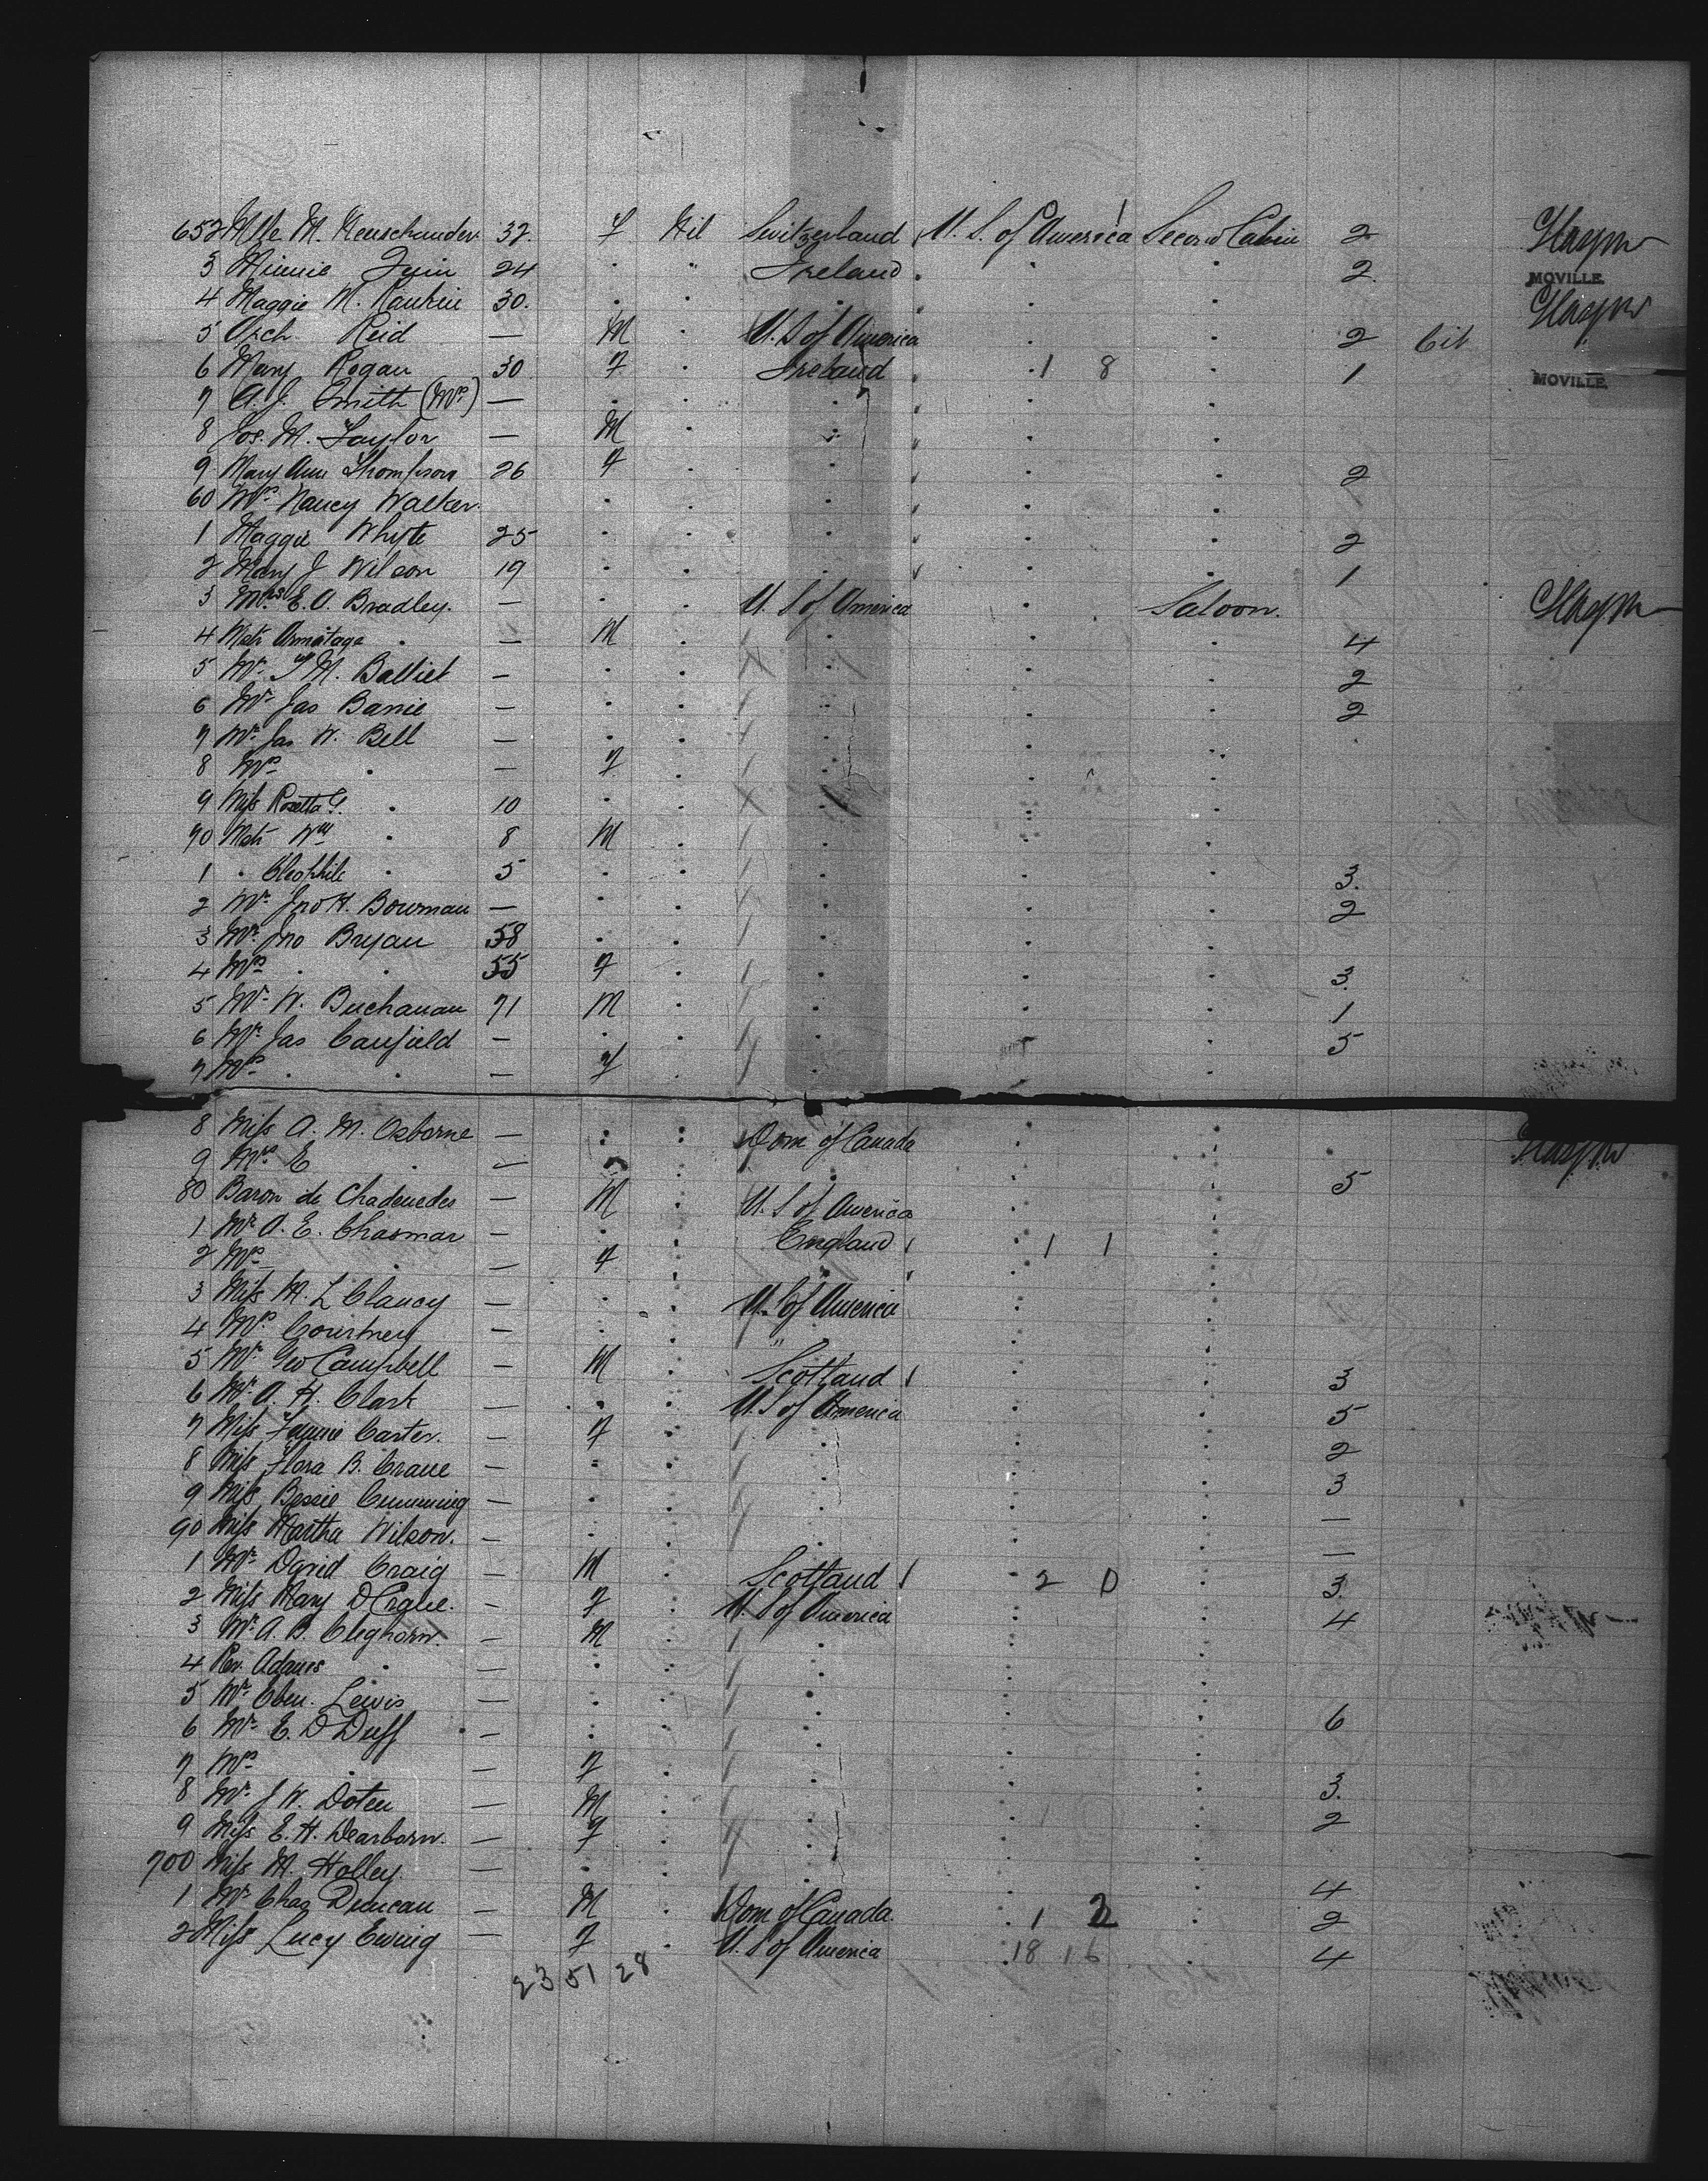 652 Mlle M. 32. f Nil Switzerland U. S. of America Second Cabin 2 Glasgow
3 Minnie 24 " " Ireland . . 2. MOVILLE.
4 Maggie M. Rankin 30. . . . . . Glasgow
5 Arch. Reid — M . U. S of America . . 2 Cit
6 Mary Rogan 30 F . Ireland . 1 8 . 1 MOVILLE.
7 A. J. Smith (Mrs) — . . . . .
8 Jos. M. Taylor — M . . . .
9 Mary Ann Thompson 26 F . . . . 2
60 Mrs Nancy Walker . . . . .
1 Maggie Whyte 25 . . . . . 2
2 Mary J Wilson 19 . . . . . 1
3 Mrs E. A. Bradley. — . . U. S of America . Saloon. Glasgow
4 Mstr Armitage . — M . . . . 4
5 Mr. T. M. Balliet — . . . . . 2
6 Mr Jas Barrie — . . . . . 2
7 Mr Jas W. Bell — . . . . .
8 Mrs . — F . . . .
9 Miss Rosetta G. . 10 . . . . .
70 Mstr Wm . 8 M . . . .
1 . Cleophile . 5 . . . . . 3.
2 Mr Jno H. Bowman — . . . . . 2
3 Mr Jno Bryan 58 . . . . .
4 Mrs . . 55 F . . . . 3.
5 Mr W. Buchanan 71 M . . . . 1
6 Mr Jas Canfield — . . . . . 5
7 Mrs . . — F . . . .
8 Miss A. M. Osborne — . . Dom of Canada . . Glasgow
9 Mrs E . — . . . . . 5
80 Baron de Chadenedes — M . U. S of America . .
1 Mr A. E. Chasmar — . . England . 1 1 .
2 Mrs . — F . . . .
3 Miss M. L Clancy — . . U. S of America . .
4 Mrs Courtney — . . " . .
5 Mr Geo Campbell — M . Scotland . . 3
6 Mr A. H. Clark — . . U. S of America . . 5
7 Miss Fannie Carter. — F . . . . 2
8 Miss Flora B. Crane — " . . . . 3
9 Miss Bessie Cumming — . . . . . —
90 Miss Martha Wilson. — . . . . . —
1 Mr David Craig — M . Scotland . 2 0 . 3.
2 Miss Mary D — F . U. S of America . . 4
3 Mr A. B. Cleghorn. — M . . . .
4 Rev. Adams . — . . . . .
5 Mr Eben. Lewis — . . . . . 6
6 Mr E. D Duff . — . . . . .
7 Mrs . — F . . . . 3.
8 Mr J W. Doten — M . . . . 2
9 Miss E. H. Dearborn. — F . . . .
700 Miss M. Holley. — . . . . . 4
1 Mr Chas Duncan — M . Dom of Canada. . 1 2 . 2
2 Miss Lucy Ewing — F . U. S of America . 18 16 . 4
23 51 28